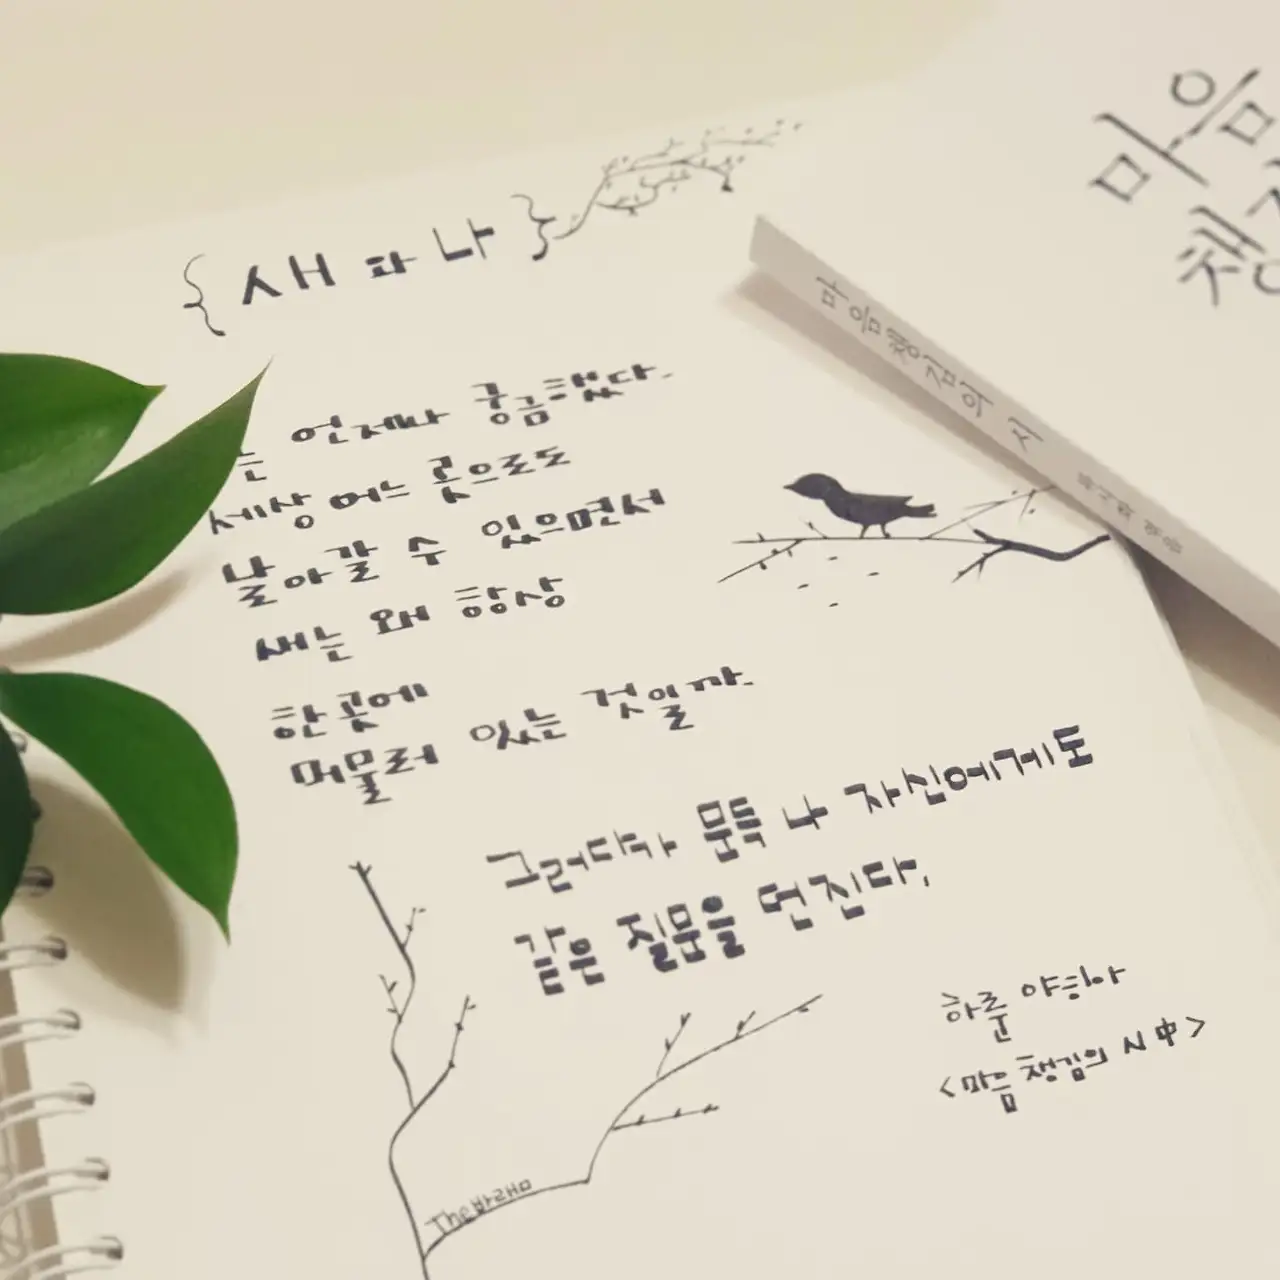 { 새와 나 }
는 언제나 궁금했다.
세상 어느 곳으로도
날아갈 수 있으면서
새는 왜 항상
한 곳에
머물러 있는 것일까.
그러다가 문득 나 자신에게도
같은 질문을 던진다.
하룬 야히아
<마음챙김의 시 中>
The바래m
마음
챙
마음챙김의 시
류시화 엮음